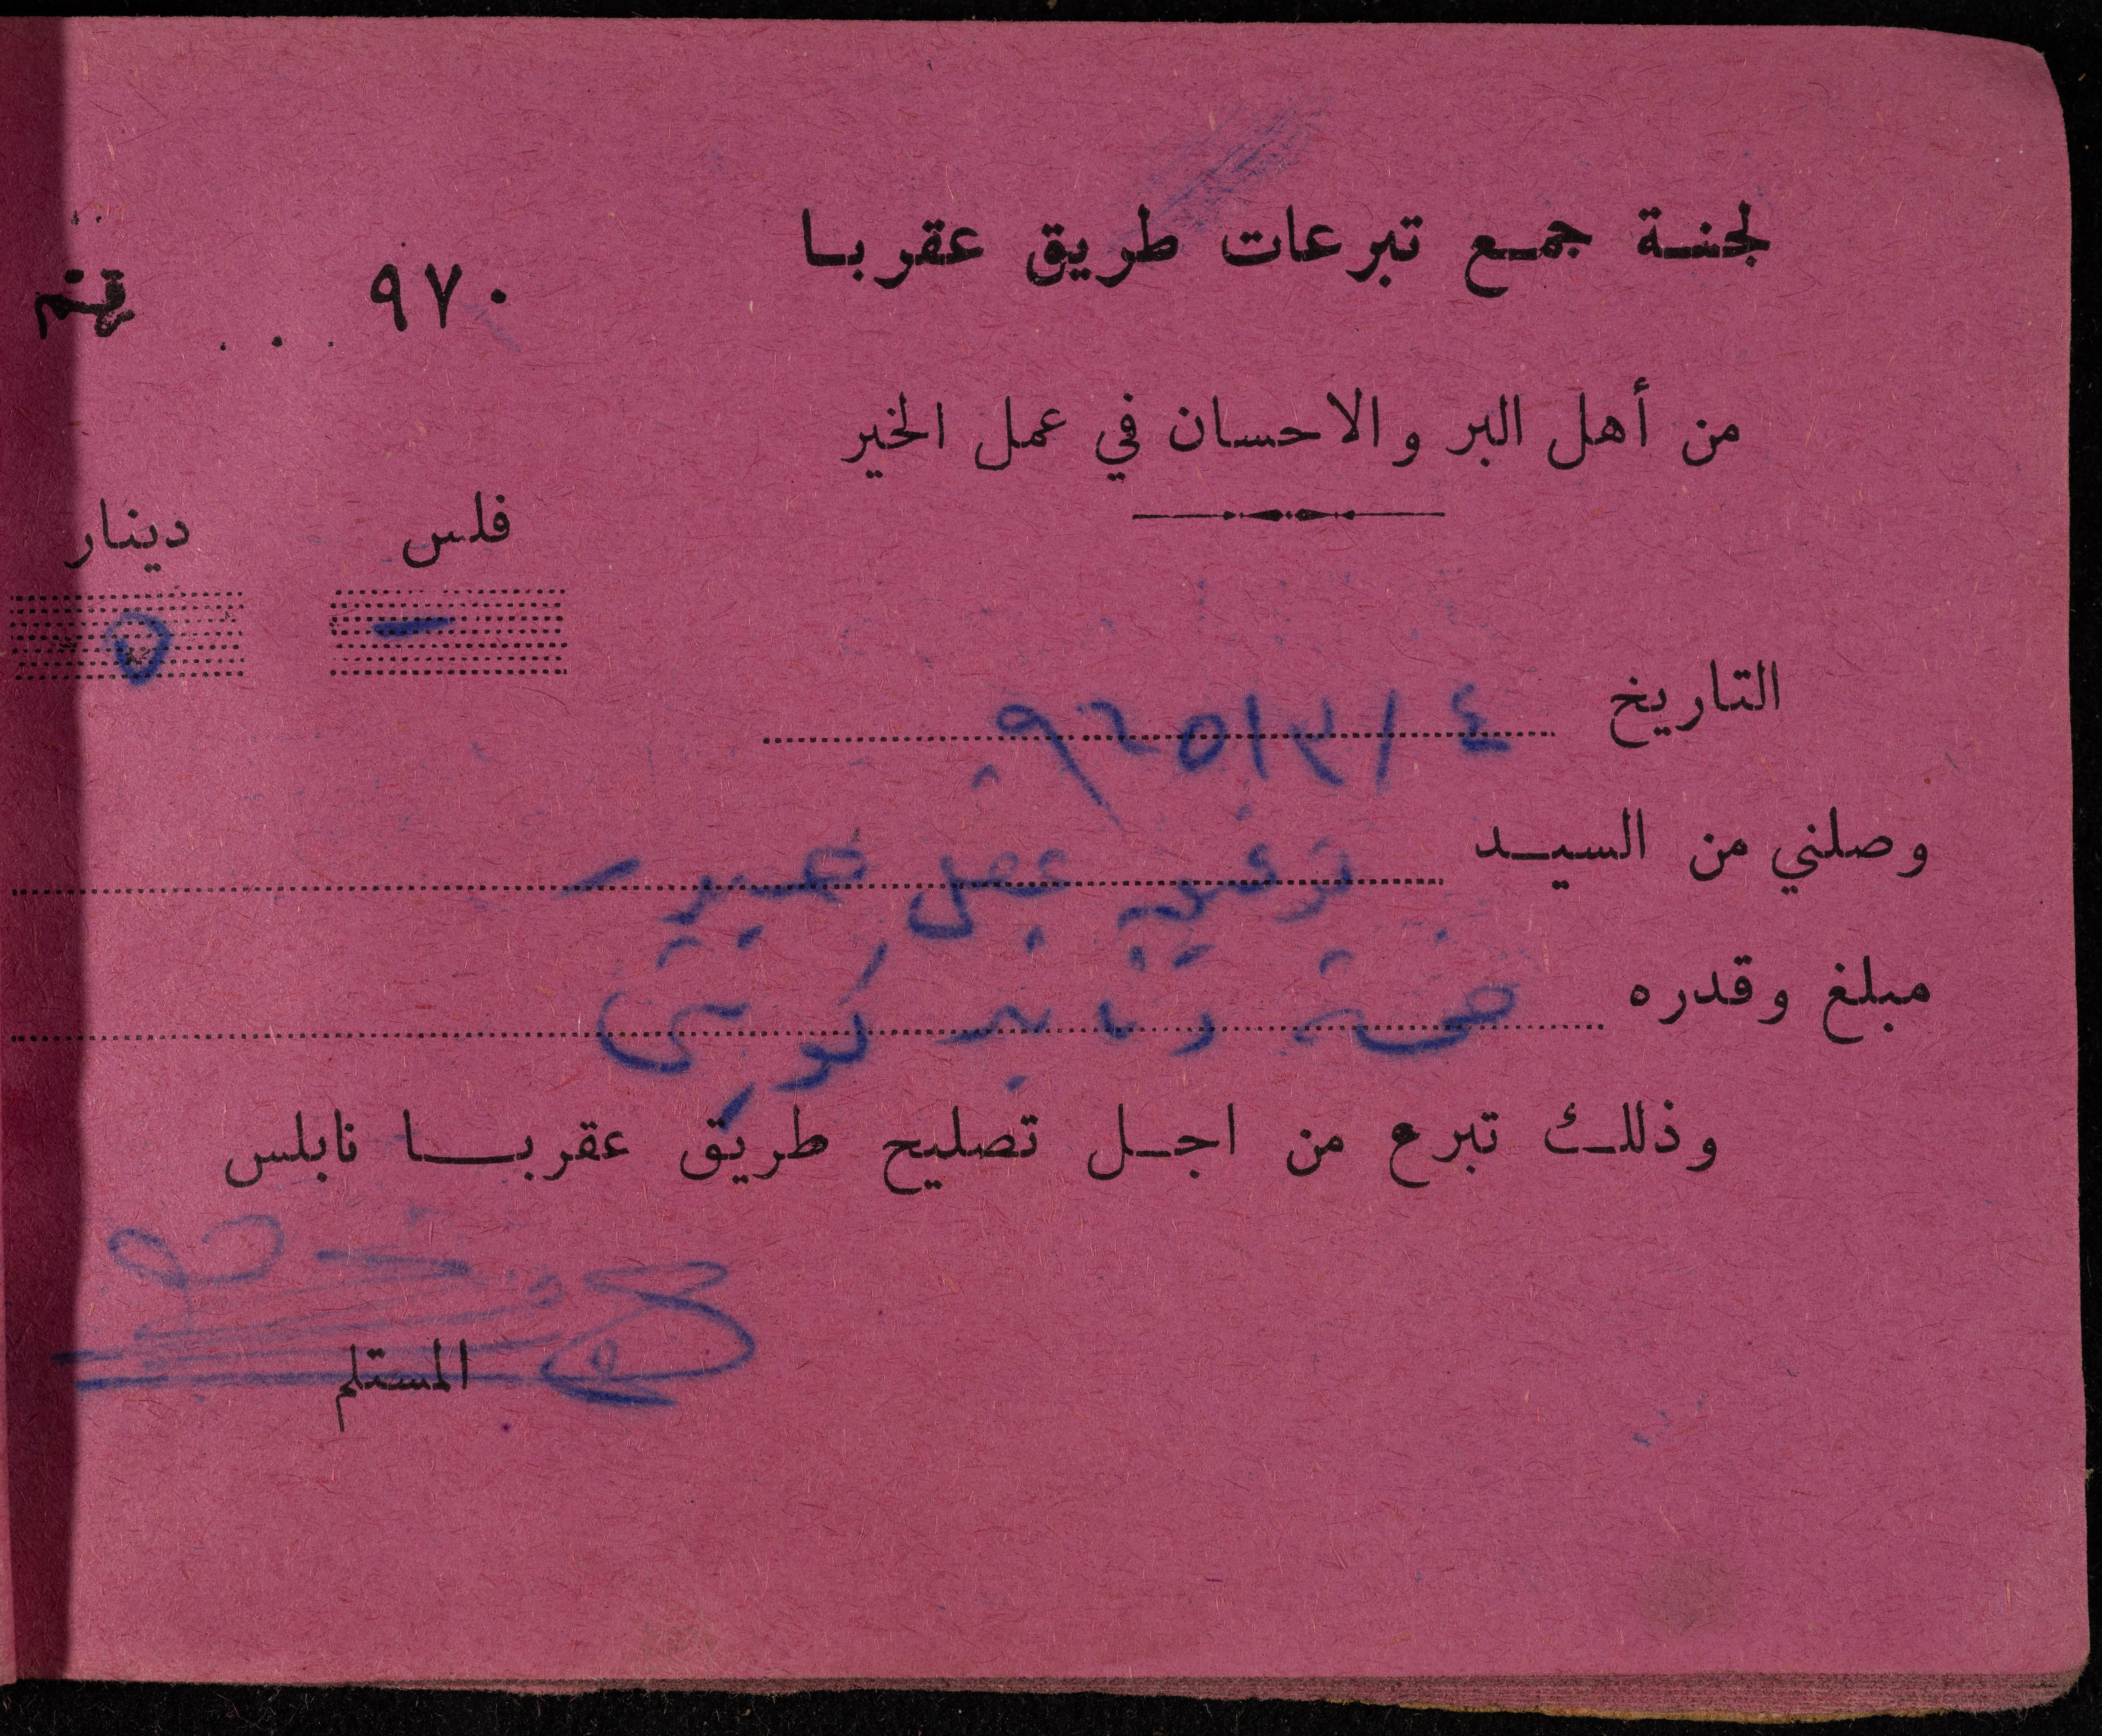 لجنة جمع تبرعات طريق عقربا
٩٧٠
من أهل البر والاحسان في عمل الخير
فلس دينار
- ٥
التاريخ ٤/٣/٩٦٥
وصلني من السيد توفيق
مبلغ وقدره خمسة دنانير كويتي
وذلك تبرع من اجل تصليح طريق عقربا نابلس
المستلم